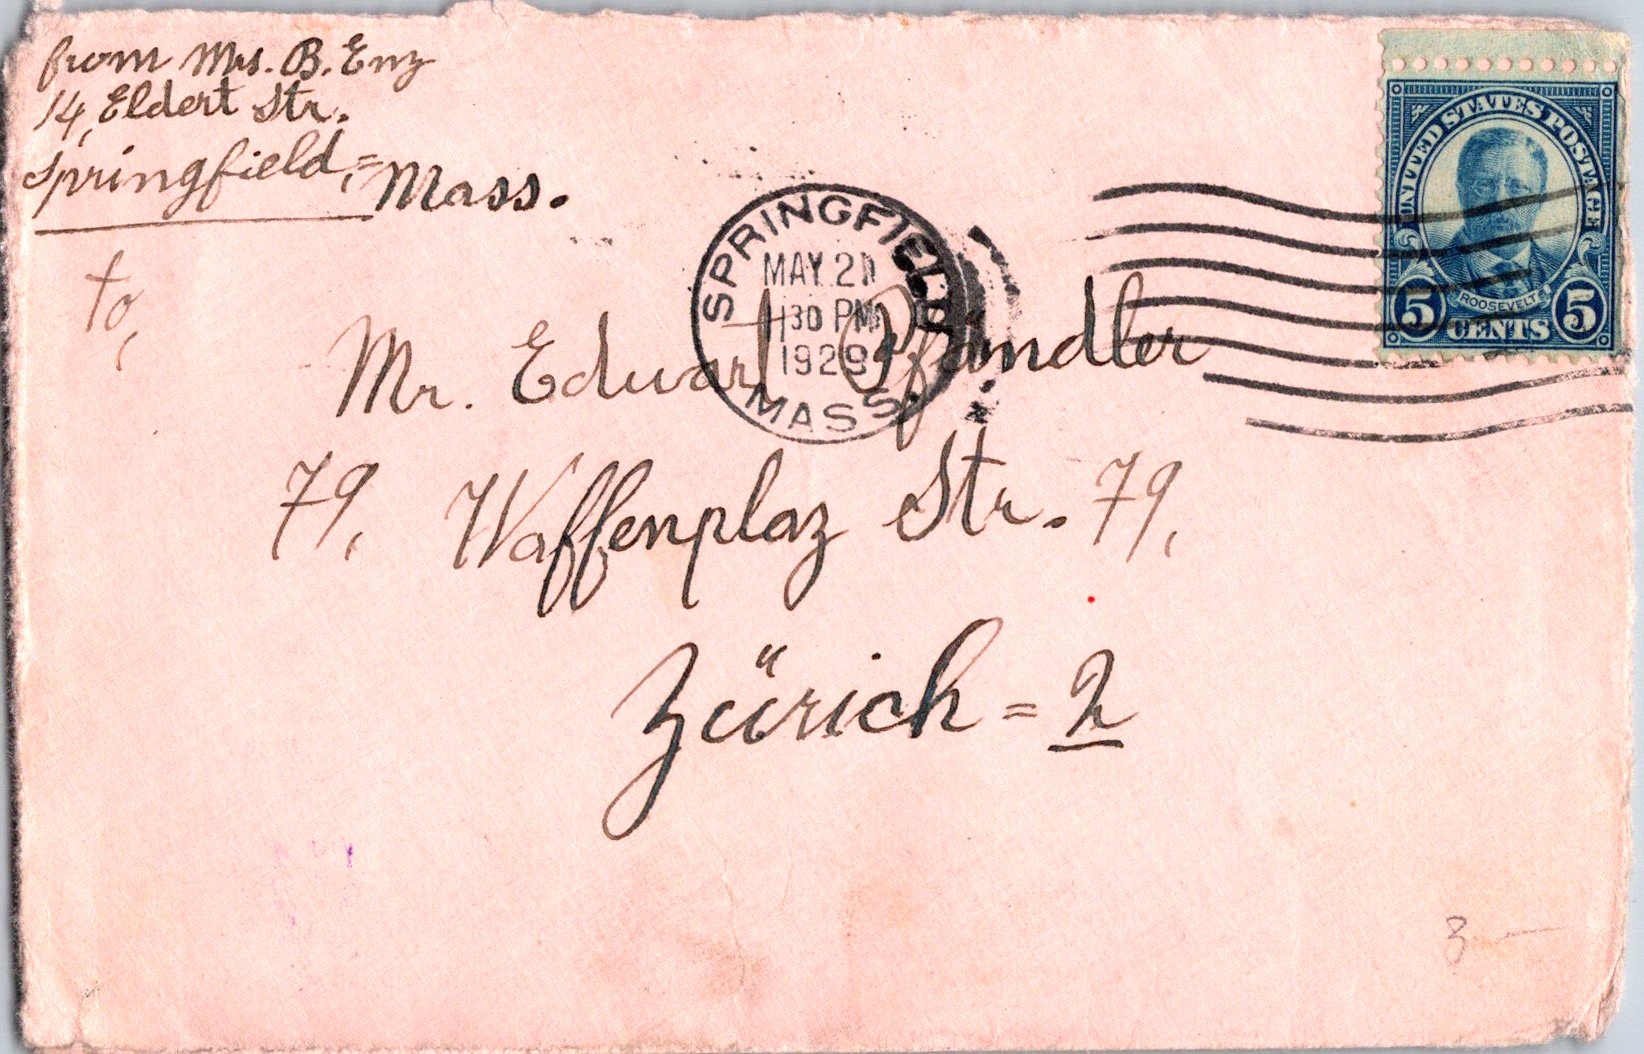 from Mrs. B. Enz
14, Eldert Str.
Springfield, = Mass.
UNITED STATES POSTAGE
ROOSEVELT
5 CENTS 5
SPRINGFIELD
MAY 21
30 PM
1929
MASS.
to,
Mr. Eduard Pfändler
79, Waffenplaz Str. 79,
Zürich = 2
3 —